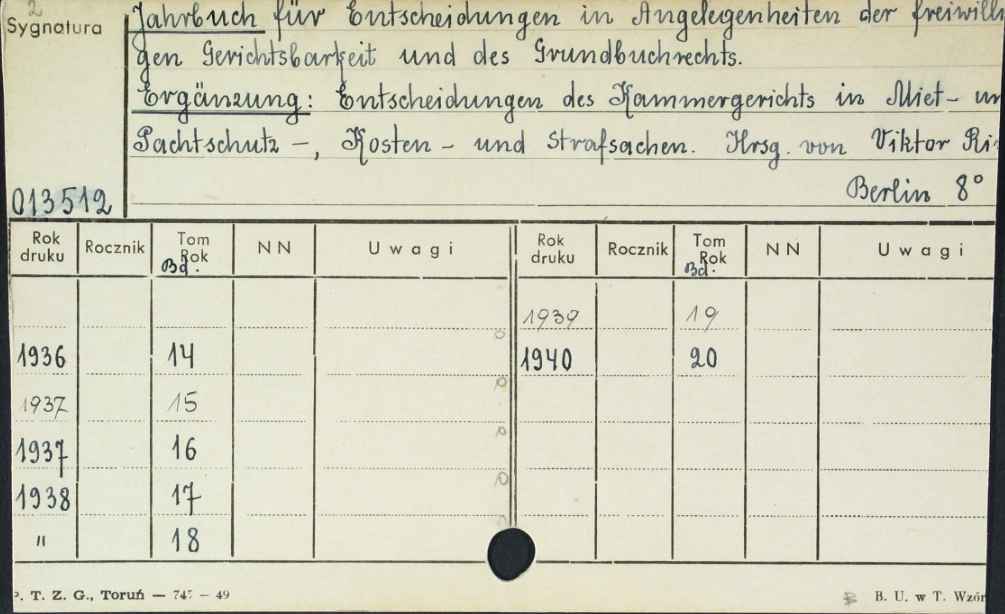 2
Sygnatura
Jahrbuch für Entscheidungen in Angelegenheiten der freiwilli
gen Gerichtsbarkeit und des Grundbuchrechts.
Ergänzung: Entscheidungen des Kammergerichts in Miet- un
Pachtschutz -, Kosten - und Strafsachen. Hrsg. von Viktor Ri
013512
Berlin 8°
Rok druku Rocznik Tom Rok Bd. NN Uwagi Rok druku Rocznik Tom Rok Bd. NN Uwagi
1939 19
1936 14 1940 20
1937 15
1937 16
1938 17
" 18
P. T. Z. G., Toruń — 747 — 49 B. U. w T. Wzór